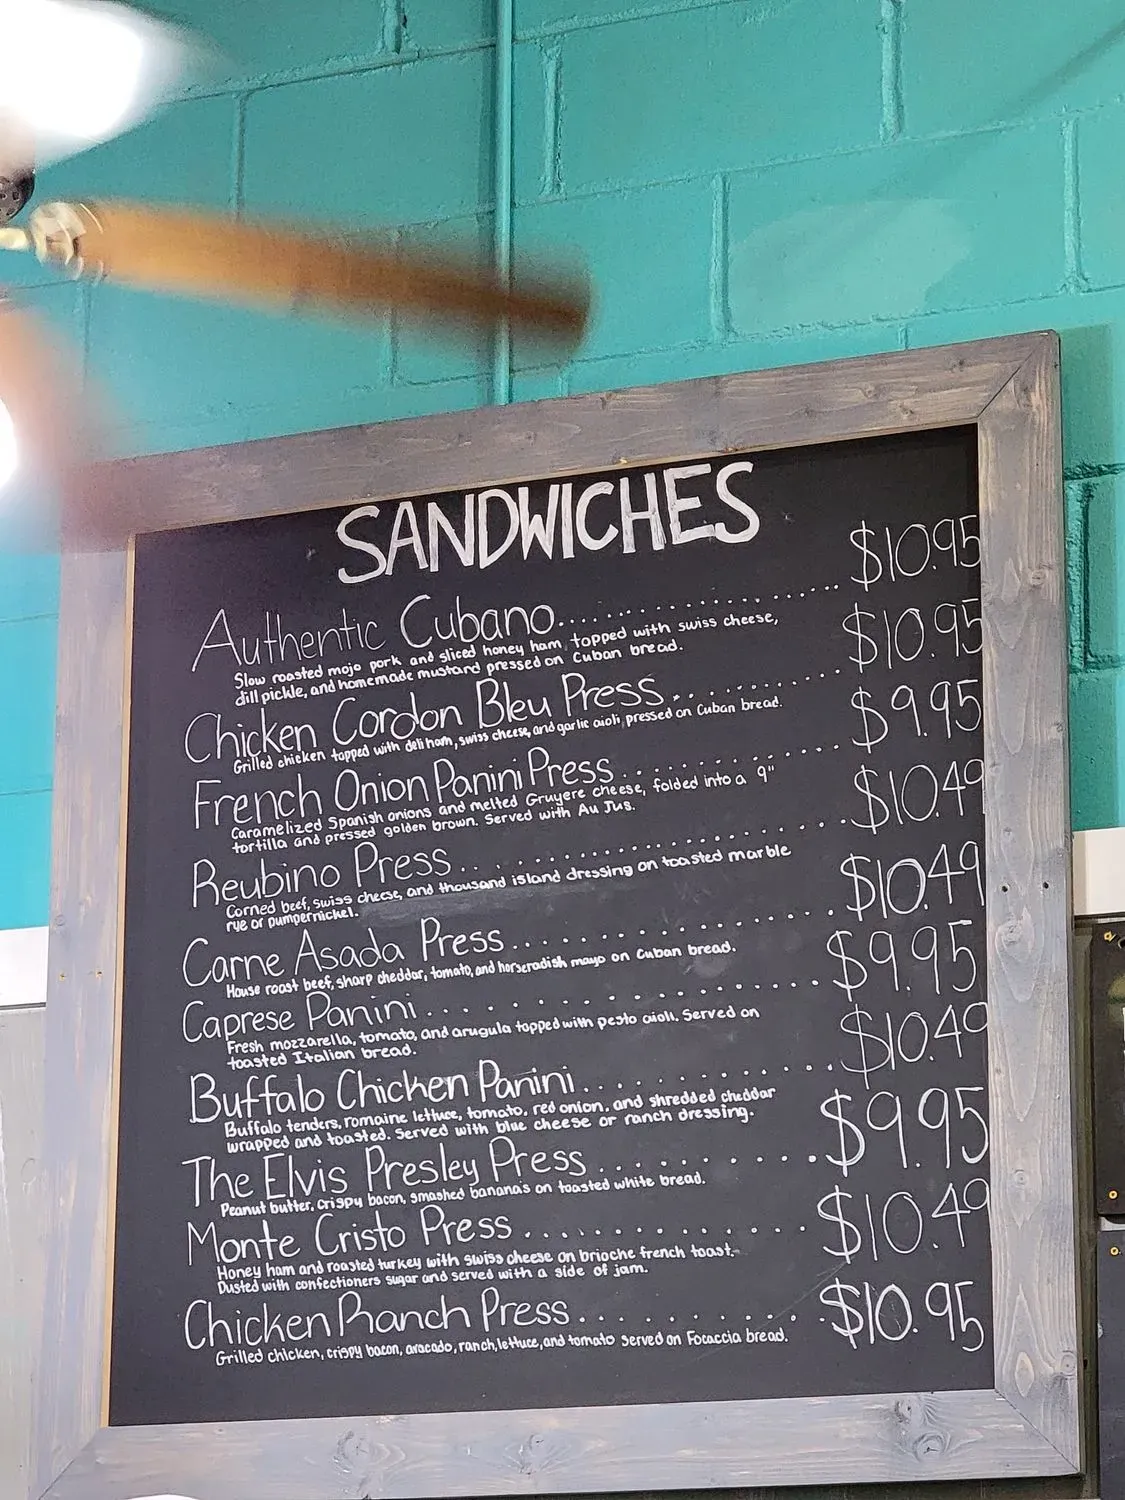 SANDWICHES
Authentic Cubano............... $10.95
Slow roasted mojo pork and sliced honey ham, topped with swiss cheese,
dill pickle, and homemade mustard pressed on Cuban bread.
Chicken Cordon Bleu Press............ $10.95
Grilled chicken topped with deli ham, swiss cheese, and garlic aioli, pressed on Cuban bread.
French Onion Panini Press............ $9.95
Caramelized Spanish onions and melted Gruyere cheese, folded into a 9"
tortilla and pressed golden brown. Served with Au Jus.
Reubino Press..................... $10.49
Corned beef, swiss cheese, and thousand island dressing on toasted marble
rye or pumpernickel.
Carne Asada Press.................. $10.49
House roast beef, sharp cheddar, tomato, and horseradish mayo on Cuban bread.
Caprese Panini.................. $9.95
Fresh mozzarella, tomato, and arugula topped with pesto aioli. Served on
toasted Italian bread.
Buffalo Chicken Panini............ $10.49
Buffalo tenders, romaine lettuce, tomato, red onion, and shredded cheddar
wrapped and toasted. Served with blue cheese or ranch dressing.
The Elvis Presley Press............ $9.95
Peanut butter, crispy bacon, smashed bananas on toasted white bread.
Monte Cristo Press............... $10.49
Honey ham and roasted turkey with swiss cheese on brioche french toast.
Dusted with confectioners sugar and served with a side of jam.
Chicken Ranch Press............ $10.95
Grilled chicken, crispy bacon, avacado, ranch, lettuce, and tomato served on Focaccia bread.